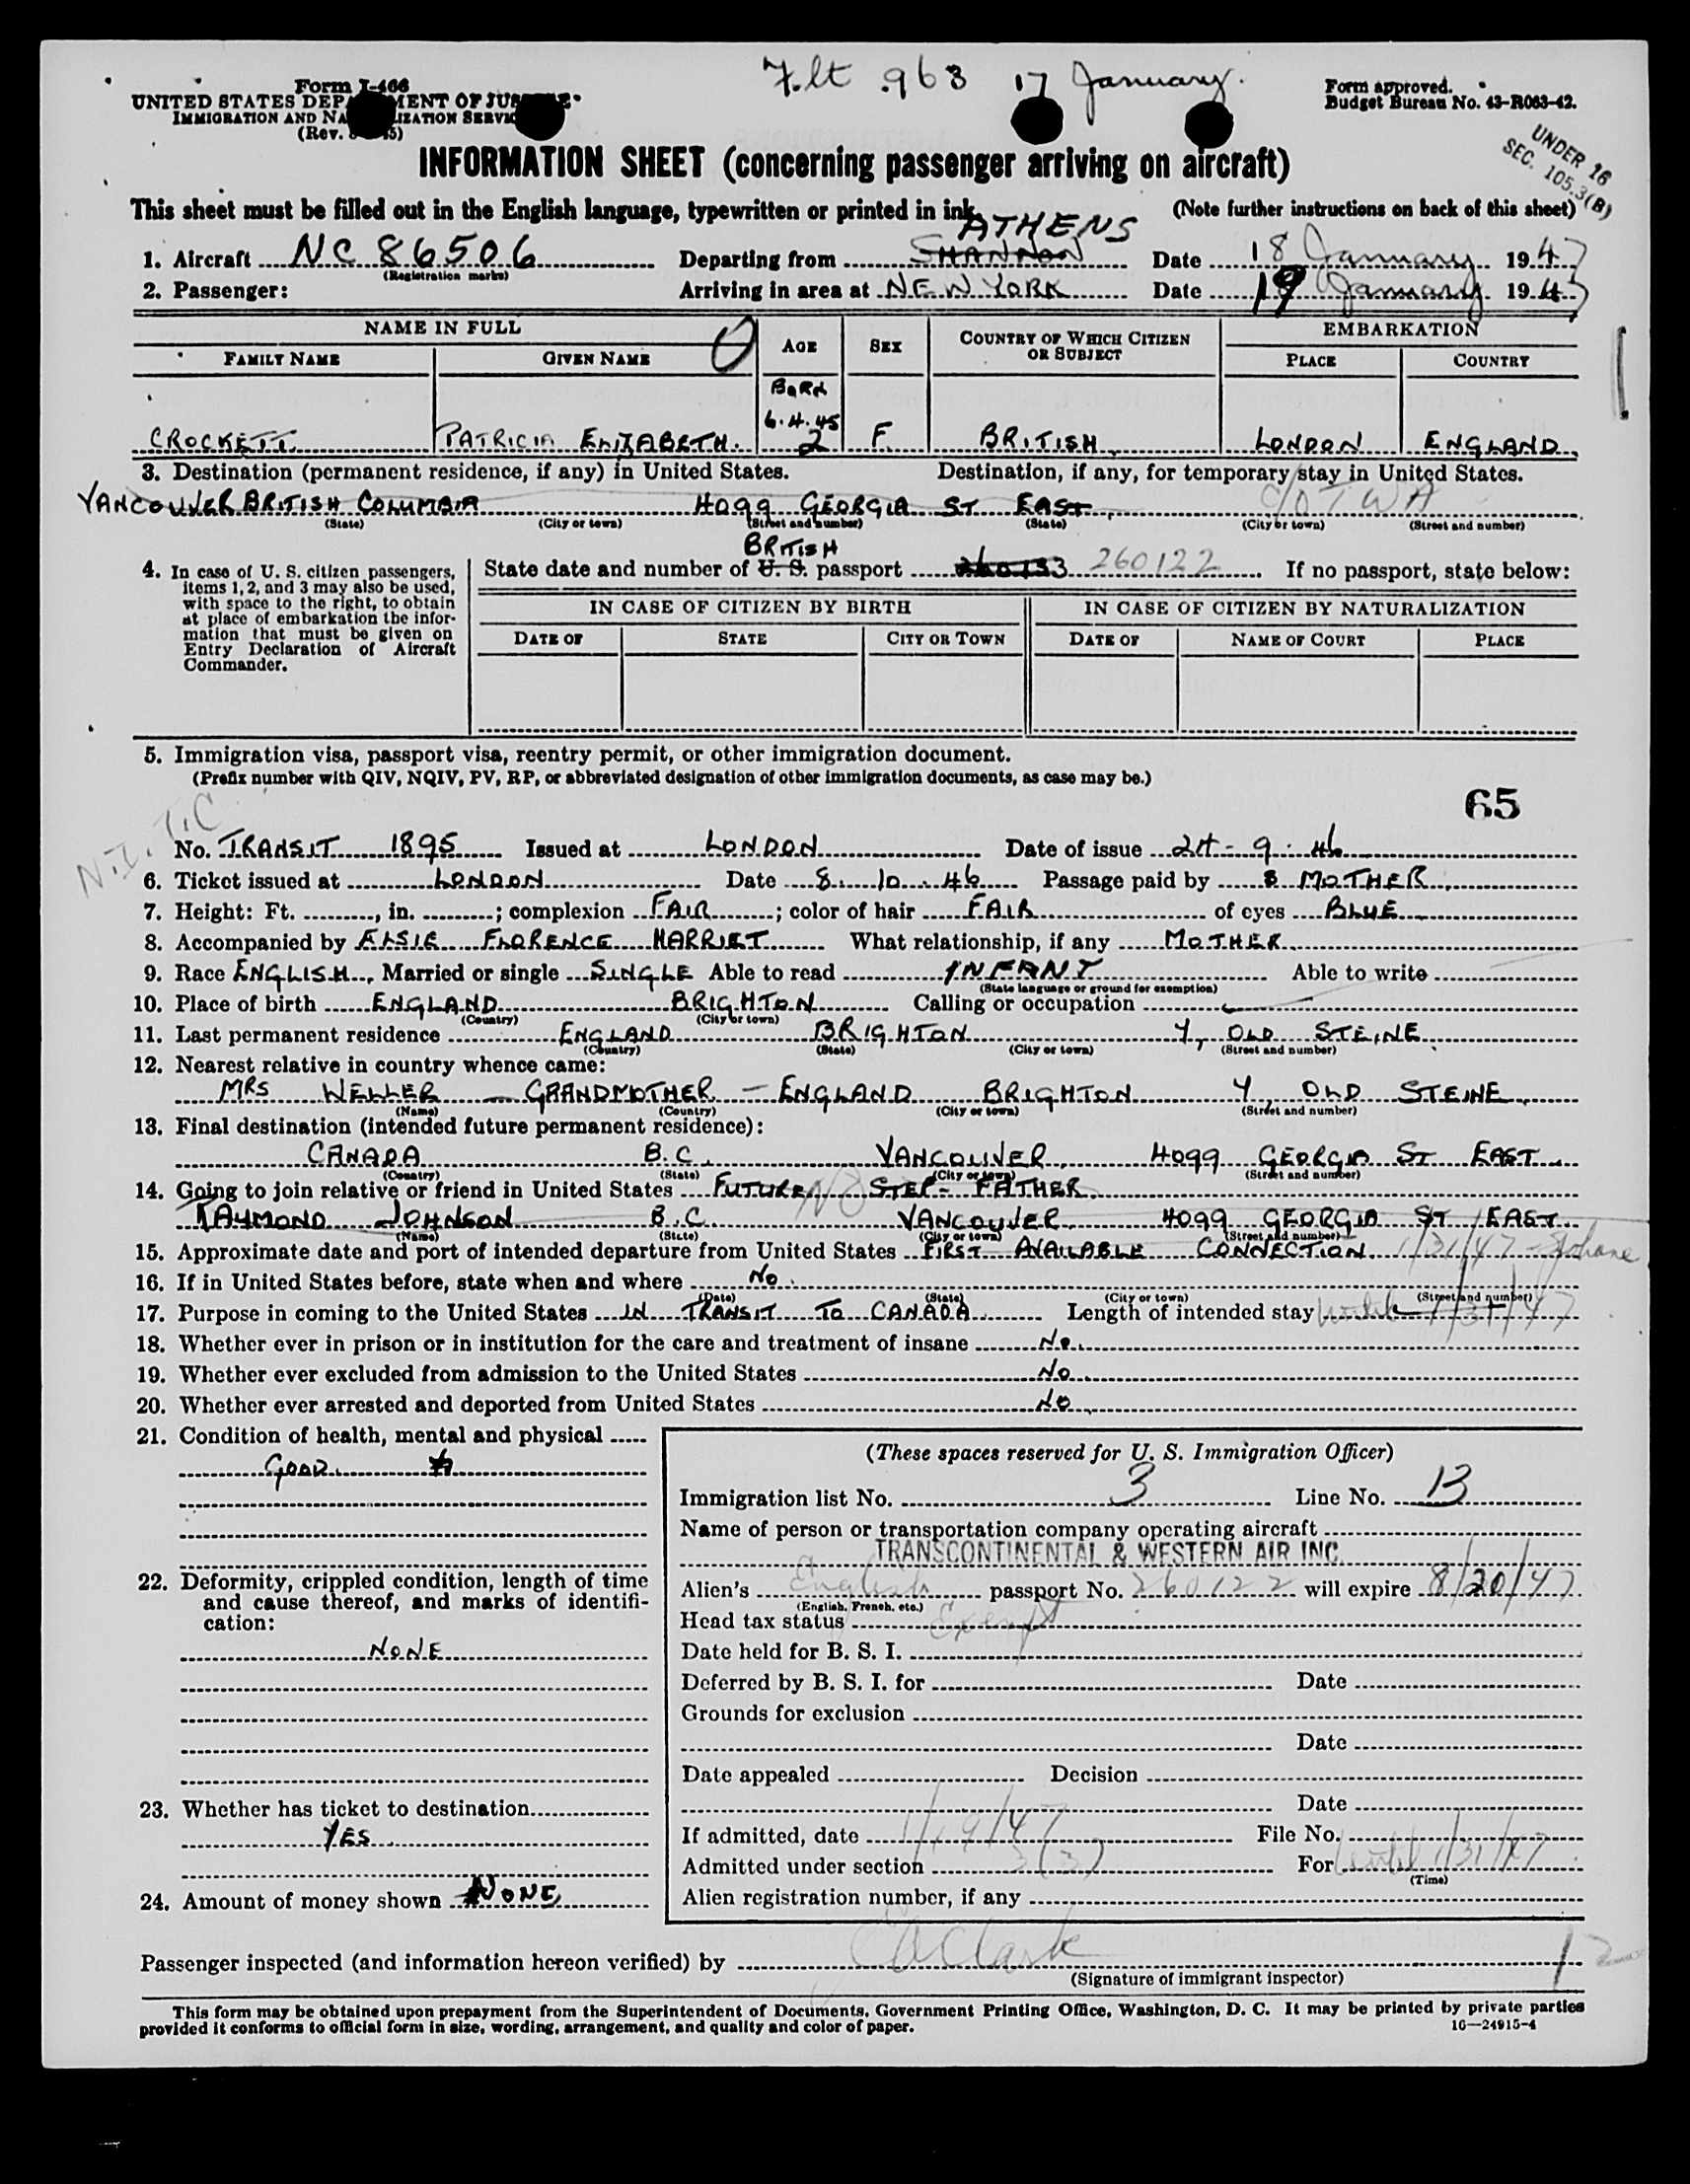 Flt 963 17 January.
Form I-466
UNITED STATES DEPARTMENT OF JUSTICE
IMMIGRATION AND NATURALIZATION SERVICE
(Rev.
Form approved.
Budget Bureau No. 43-R063-42.
UNDER 16
SEC. 105.3(B)
INFORMATION SHEET (concerning passenger arriving on aircraft)
This sheet must be filled out in the English language, typewritten or printed in ink. (Note further instructions on back of this sheet)
ATHENS
1. Aircraft NC 86506 Departing from SHANNON Date 18 January 1947
(Registration marks)
2. Passenger: Arriving in area at NEW YORK Date 19 January 1947
NAME IN FULL AGE SEX COUNTRY OF WHICH CITIZEN OR SUBJECT EMBARKATION
FAMILY NAME GIVEN NAME PLACE COUNTRY
BORN
6.4.45
CROCKETT PATRICIA ELIZABETH. 2 F BRITISH LONDON ENGLAND
3. Destination (permanent residence, if any) in United States. Destination, if any, for temporary stay in United States.
C/O TWA
VANCOUVER BRITISH COLUMBIA 4099 GEORGIA ST EAST
(State) (City or town) (Street and number) (State) (City or town) (Street and number)
BRITISH
4. In case of U. S. citizen passengers, items 1, 2, and 3 may also be used, with space to the right, to obtain at place of embarkation the information that must be given on Entry Declaration of Aircraft Commander.
State date and number of U. S. passport 260122 If no passport, state below:
IN CASE OF CITIZEN BY BIRTH IN CASE OF CITIZEN BY NATURALIZATION
DATE OF STATE CITY OR TOWN DATE OF NAME OF COURT PLACE
5. Immigration visa, passport visa, reentry permit, or other immigration document.
(Prefix number with QIV, NQIV, PV, RP, or abbreviated designation of other immigration documents, as case may be.)
65
No. TRANSIT 1895 Issued at LONDON Date of issue 24-9-46
6. Ticket issued at LONDON Date 8.10.46 Passage paid by MOTHER
7. Height: Ft. , in. ; complexion FAIR ; color of hair FAIR of eyes BLUE
8. Accompanied by ELSIE FLORENCE HARRIET What relationship, if any MOTHER
9. Race ENGLISH Married or single SINGLE Able to read INFANT Able to write
(State language or ground for exemption)
10. Place of birth ENGLAND BRIGHTON Calling or occupation
(Country) (City or town)
11. Last permanent residence ENGLAND BRIGHTON 4, OLD STEINE
(Country) (State) (City or town) (Street and number)
12. Nearest relative in country whence came:
MRS WELLER - GRANDMOTHER - ENGLAND BRIGHTON 4, OLD STEINE
(Name) (Country) (City or town) (Street and number)
13. Final destination (intended future permanent residence):
CANADA B.C. VANCOUVER 4099 GEORGIA ST EAST
(Country) (State) (City or town) (Street and number)
14. Going to join relative or friend in United States FUTURE STEP-FATHER
NO
RAYMOND JOHNSON B.C VANCOUVER 4099 GEORGIA ST EAST
(Name) (State) (City or town) (Street and number)
15. Approximate date and port of intended departure from United States FIRST AVAILABLE CONNECTION 1/31/47 - Spokane
16. If in United States before, state when and where No
(Date) (State) (City or town) (Street and number)
17. Purpose in coming to the United States IN TRANSIT TO CANADA Length of intended stay until 1/31/47
18. Whether ever in prison or in institution for the care and treatment of insane No.
19. Whether ever excluded from admission to the United States No
20. Whether ever arrested and deported from United States No
21. Condition of health, mental and physical
GOOD
22. Deformity, crippled condition, length of time and cause thereof, and marks of identification:
NONE
23. Whether has ticket to destination
YES
24. Amount of money shown NONE
(These spaces reserved for U. S. Immigration Officer)
Immigration list No. 3 Line No. 13
Name of person or transportation company operating aircraft
TRANSCONTINENTAL & WESTERN AIR INC.
Alien's English passport No. 260122 will expire 8/20/47
(English, French, etc.)
Head tax status Exempt
Date held for B. S. I.
Deferred by B. S. I. for Date
Grounds for exclusion
Date
Date appealed Decision
Date
If admitted, date 1/19/47 File No.
Admitted under section 3(3) For until 1/31/47
(Time)
Alien registration number, if any
Passenger inspected (and information hereon verified) by Clark
(Signature of immigrant inspector)
12
This form may be obtained upon prepayment from the Superintendent of Documents, Government Printing Office, Washington, D. C. It may be printed by private parties
provided it conforms to official form in size, wording, arrangement, and quality and color of paper. 16—24915-4